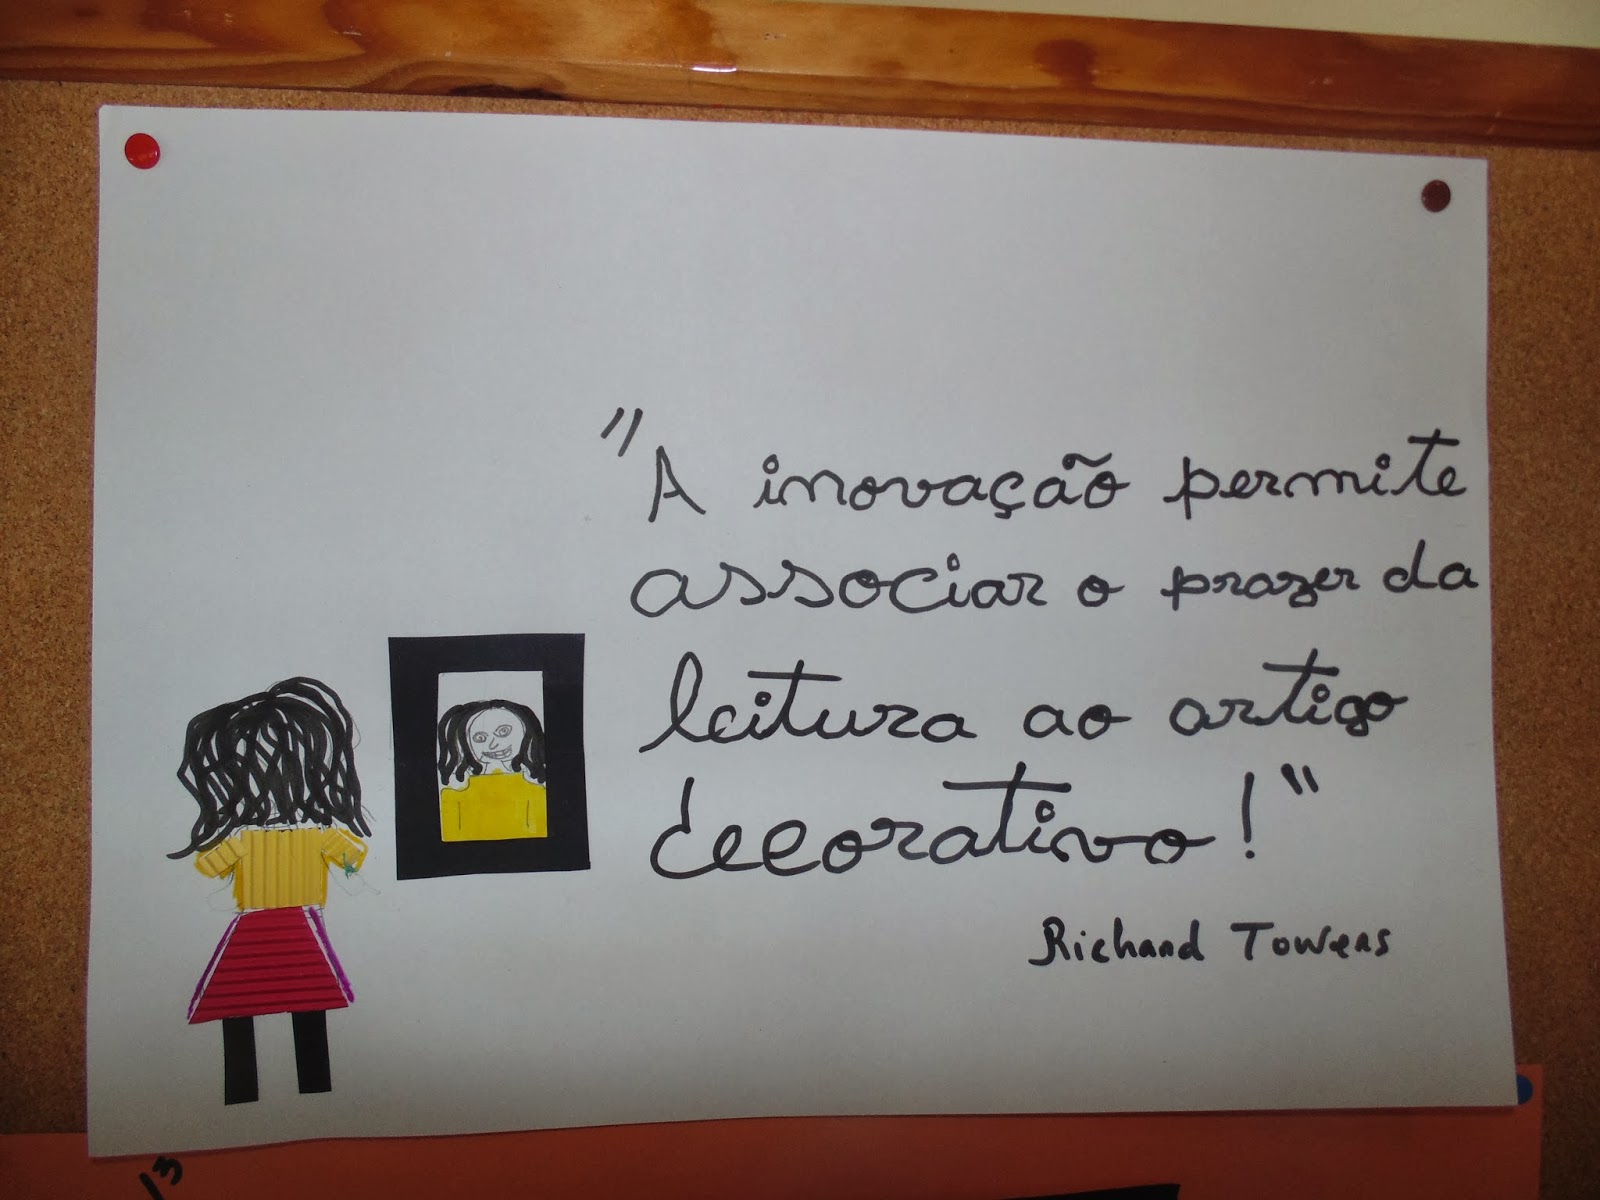 "A inovação permite
associar o prazer da
leitura ao artigo
decorativo!"
Richard Towers
13